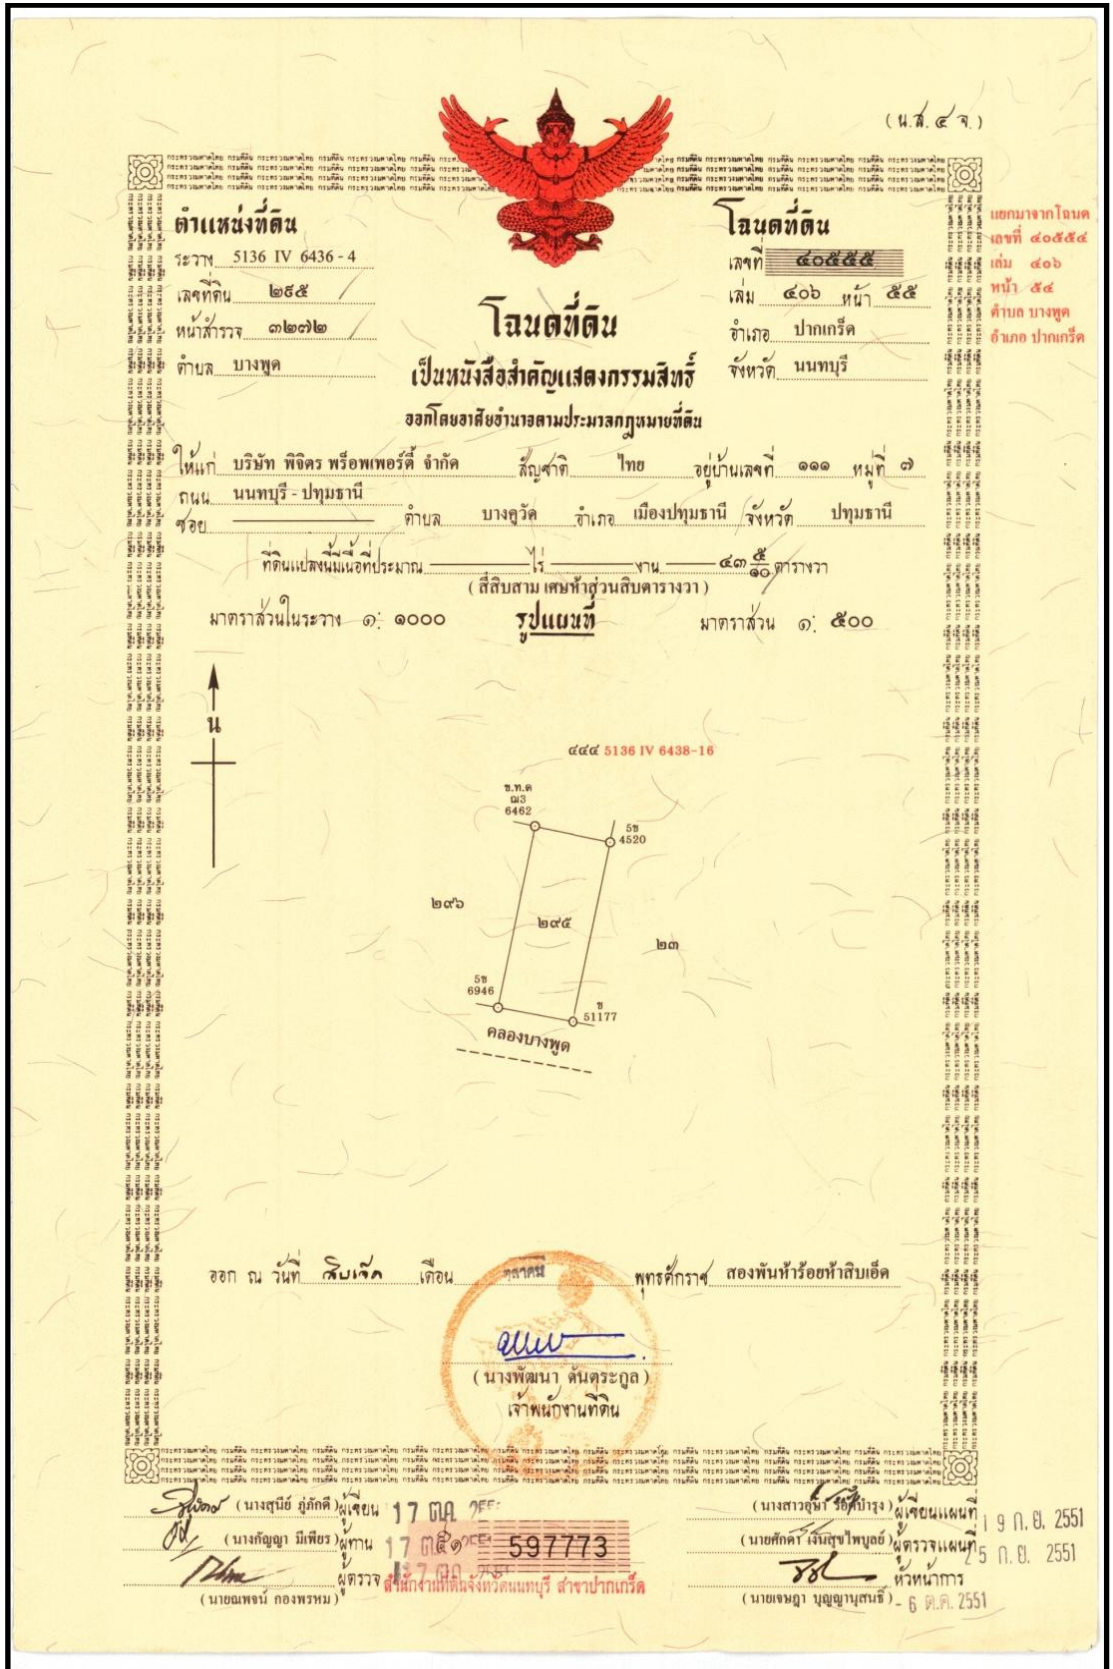 (น.ส. ๔ จ.)
ตำแหน่งที่ดิน
ระวาง 5136 IV 6436 - 4
เลขที่ดิน ๒๙๕
หน้าสำรวจ ๓๒๗๒
ตำบล บางพูด
โฉนดที่ดิน
เลขที่ ๔๐๕๕๕
เล่ม ๔๐๖ หน้า ๕๕
อำเภอ ปากเกร็ด
จังหวัด นนทบุรี
แยกมาจากโฉนด
เลขที่ ๔๐๕๕๔
เล่ม ๔๐๖
หน้า ๕๔
ตำบล บางพูด
อำเภอ ปากเกร็ด
โฉนดที่ดิน
เป็นหนังสือสำคัญแสดงกรรมสิทธิ์
ออกโดยอาศัยอำนาจตามประมวลกฎหมายที่ดิน
ให้แก่ บริษัท พิจิตร พร็อพเพอร์ตี้ จำกัด สัญชาติ ไทย อยู่บ้านเลขที่ ๑๑๑ หมู่ที่ ๗
ถนน นนทบุรี - ปทุมธานี
ซอย ตำบล บางคูวัด อำเภอ เมืองปทุมธานี จังหวัด ปทุมธานี
ที่ดินแปลงนี้มีเนื้อที่ประมาณ ไร่ งาน ๔๓ ๕/๑๐ ตารางวา
( สี่สิบสาม เศษห้าส่วนสิบตารางวา )
มาตราส่วนในระวาง ๑: ๑๐๐๐ รูปแผนที่ มาตราส่วน ๑: ๕๐๐
น
๔๔๔ 5136 IV 6438-16
ข.ท.ด
ฌ3
6462
5ข
4520
๒๙๖
๒๙๕
๒๓
5ข
6946
ข
51177
คลองบางพูด
ออก ณ วันที่ สิบเจ็ด เดือน ตุลาคม พุทธศักราช สองพันห้าร้อยห้าสิบเอ็ด
( นางพัฒนา ตันตระกูล )
เจ้าพนักงานที่ดิน
( นางสุนีย์ ภู่ภักดี ) ผู้เขียน 17 ต.ค. 2551
( นางกัญญา มีเพียร ) ผู้ทาน 17 ต.ค.
ผู้ตรวจ 17 ต.ค.
( นายณพจน์ กองพรหม )
597773
สำนักงานที่ดินจังหวัดนนทบุรี สาขาปากเกร็ด
( นางสาวอุษา ) ผู้เขียนแผนที่ 19 ก.ย. 2551
( นายศักดา เงินสุขไพบูลย์ ) ผู้ตรวจแผนที่ 25 ก.ย. 2551
หัวหน้าการ
( นายเจษฎา บุญญานุสนธิ์ ) - 6 ต.ค. 2551